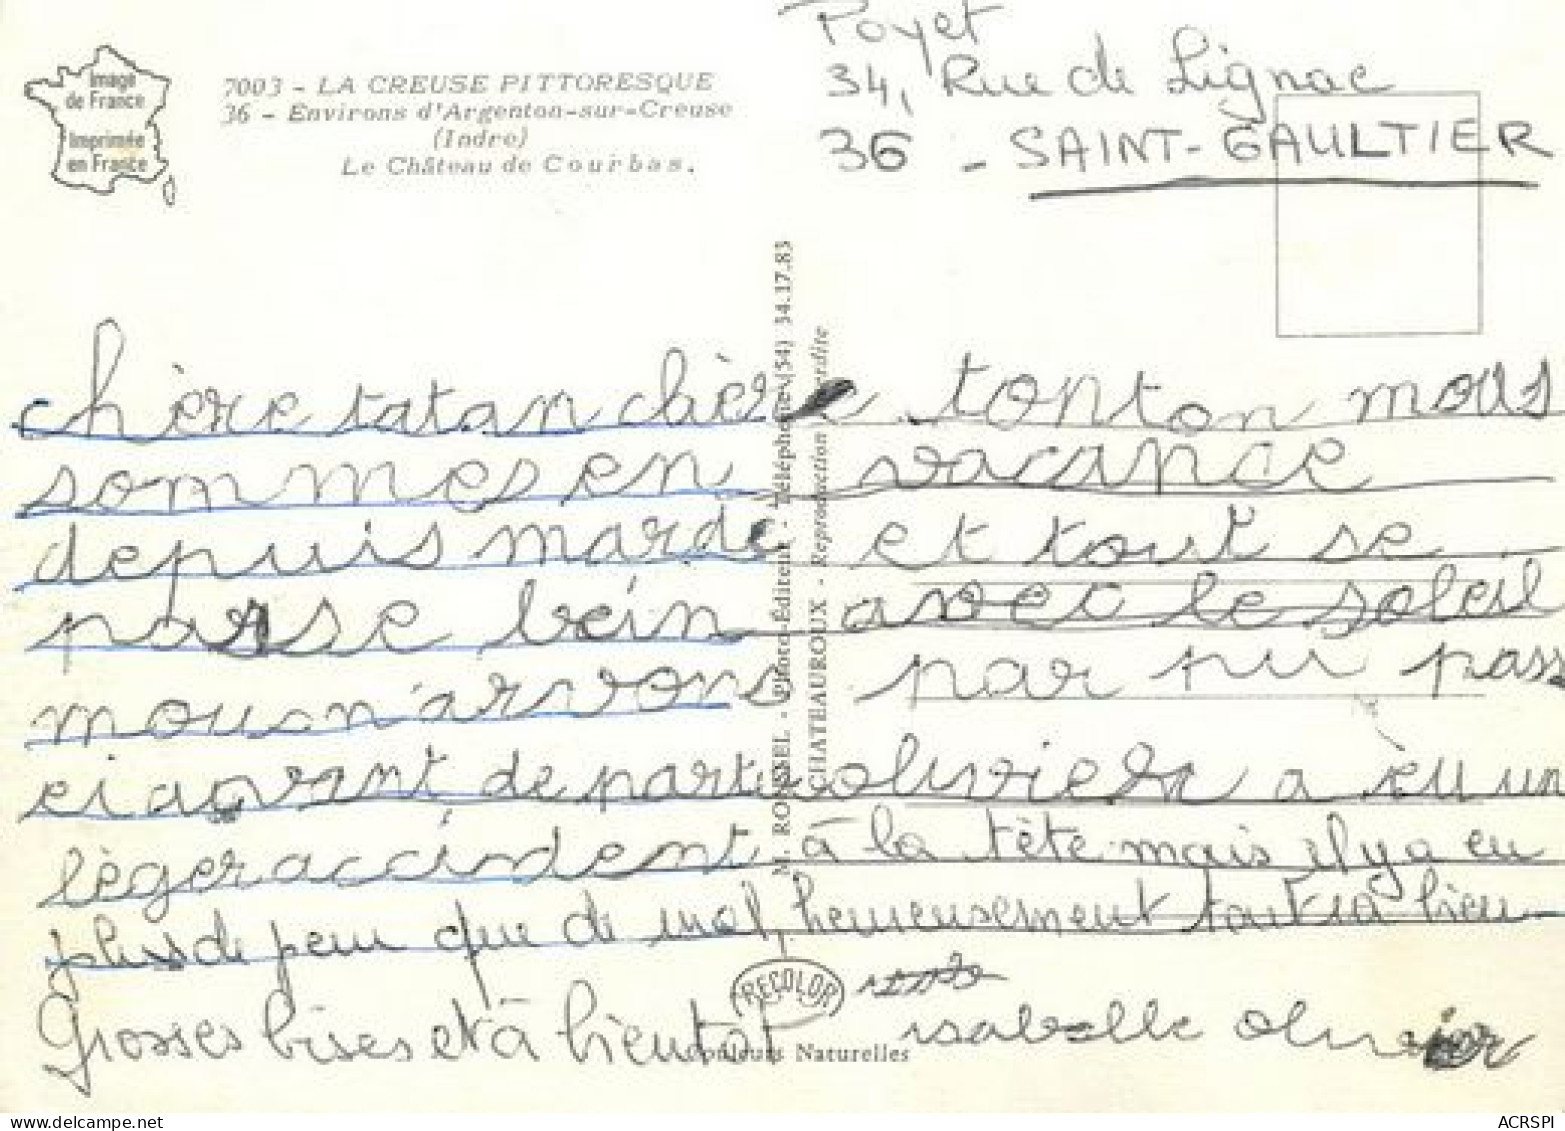 Image
de France
Imprimée
en France
7003 - LA CREUSE PITTORESQUE
36 - Environs d'Argenton-sur-Creuse
(Indre)
Le Château de Courbas.
Poyet
34, Rue de Lignac
36 - SAINT-GAULTIER
M. ROUSSEL - Photo-Éditeur - Téléphone (54) 34.17.83
CHATHAUROUX - Reproduction interdite
chère tatan chère tonton mous
sommes en vacance
depuis marde et tout se
passe bein avec le soleil
mous n'arvons par pu pass
ei aavant de parti olivier a èu un
lèger accident à la tête mais il y a eu
plus de peur que de mal, heureusement tout va bien
Grosses bises et à bientôt isabelle olivier
RECOLOR
Couleurs Naturelles
ACRSPI